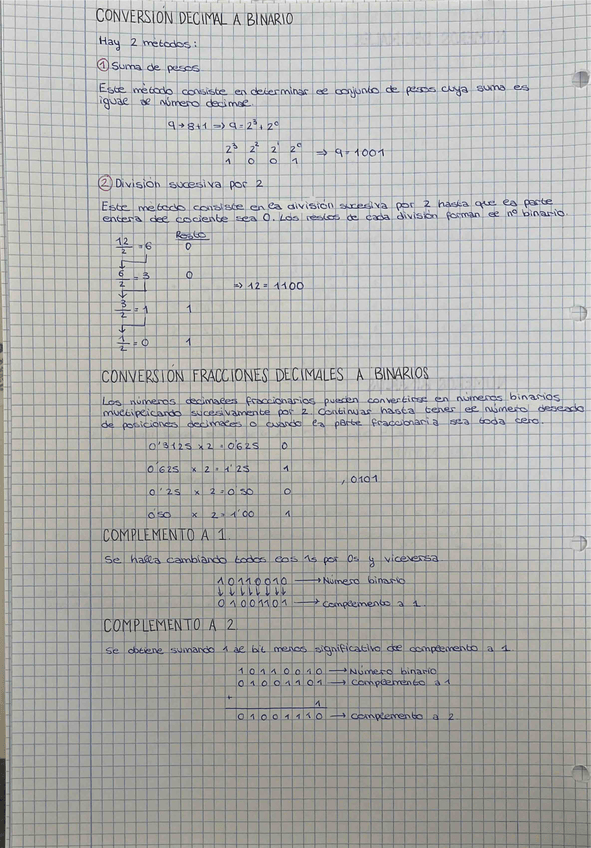 CONVERSIÓN DECIMAL A BINARIO
Hay 2 métodos:
① Suma de pesos
Este método consiste en determinar el conjunto de pesos cuya suma es
igual al número decimal.
9 → 8+1 ⇒ 9 = 2³ + 2⁰
2³ 2² 2¹ 2⁰
1 0 0 1 ⇒ 9 = 1001
② División sucesiva por 2
Este método consiste en la división sucesiva por 2 hasta que la parte
entera del cociente sea 0. Los restos de cada división forman el nº binario.
Resto
12/2 = 6 0
6/2 = 3 0
⇒ 12 = 1100
3/2 = 1 1
1/2 = 0 1
CONVERSIÓN FRACCIONES DECIMALES A BINARIOS
Los números decimales fraccionarios pueden convertirse en números binarios
multiplicando sucesivamente por 2. Continuar hasta tener el número deseado
de posiciones decimales o cuando la parte fraccionaria sea toda cero.
0'3125 x 2 = 0'625 0
0'625 x 2 = 1'25 1
, 0101
0'25 x 2 = 0'50 0
0'50 x 2 = 1'00 1
COMPLEMENTO A 1
Se halla cambiando todos los 1s por 0s y viceversa
10110010 → Número binario
↓↓↓↓↓↓↓↓
01001101 → Complemento a 1.
COMPLEMENTO A 2
Se obtiene sumando 1 al bit menos significativo del complemento a 1.
10110010 → Número binario
01001101 → Complemento a 1
+
1
01001110 → Complemento a 2